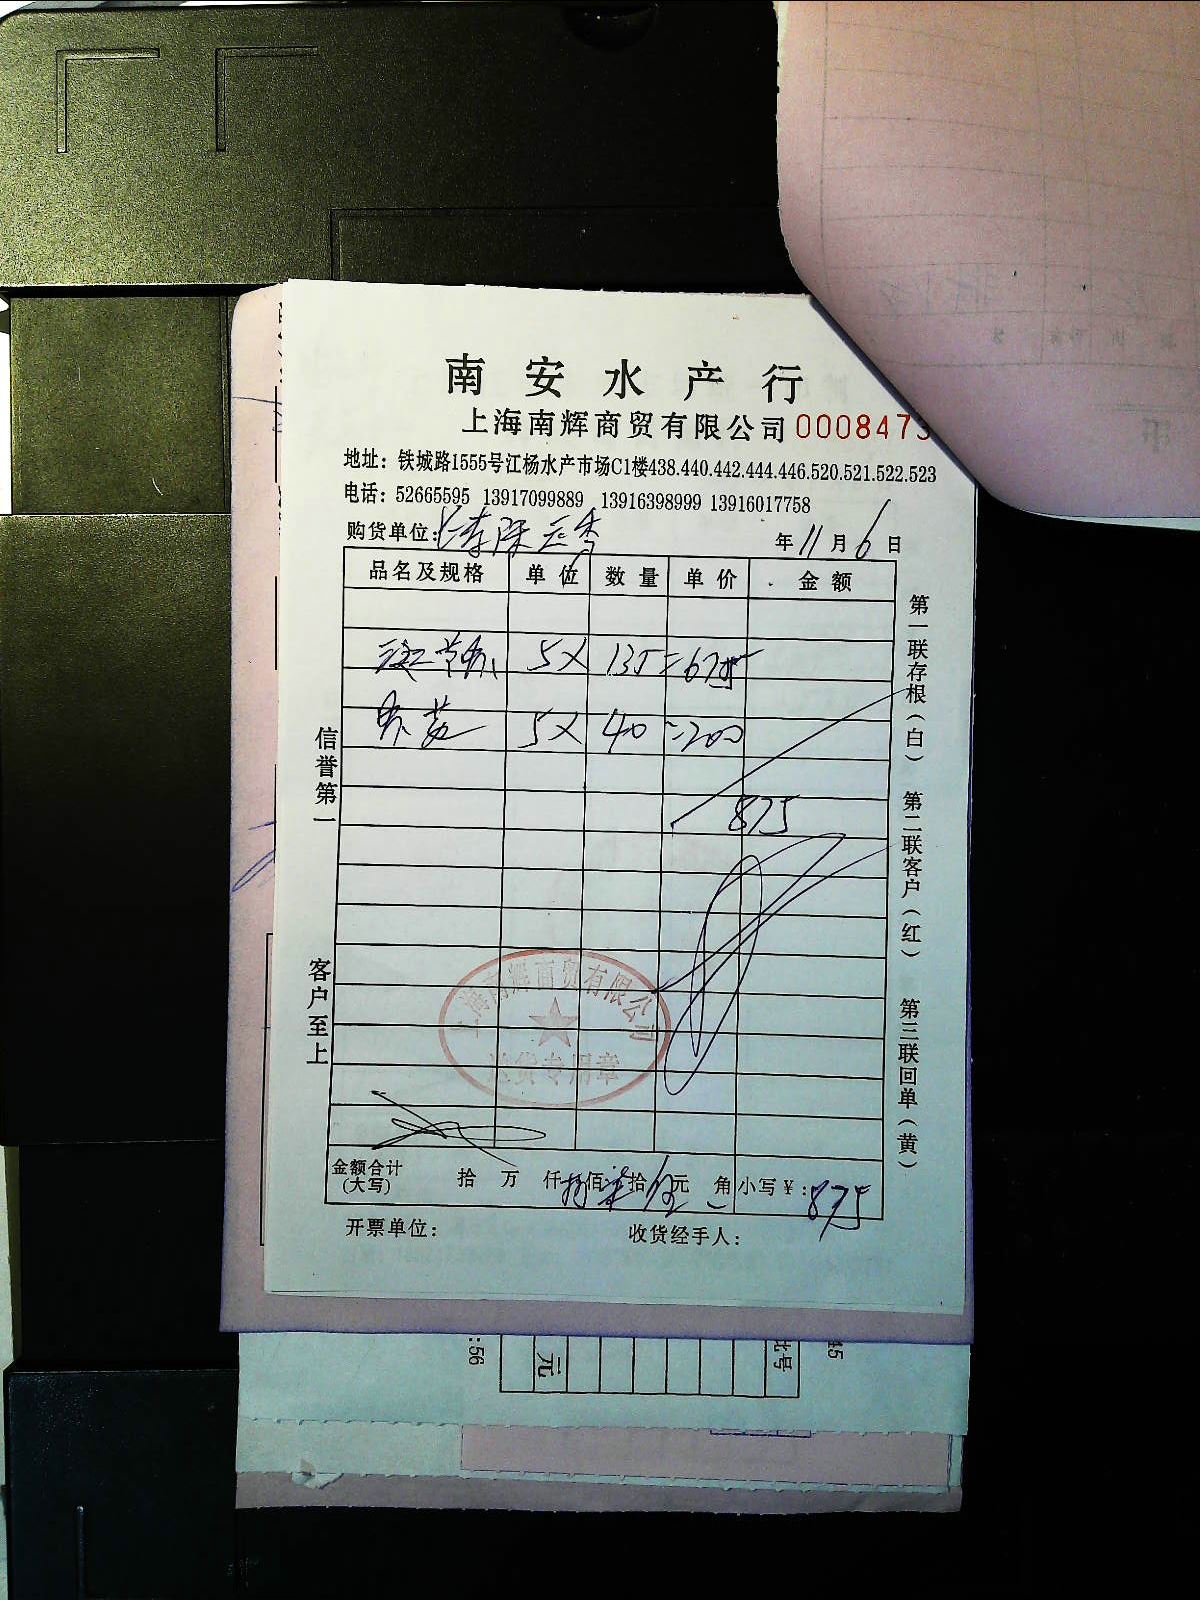 南安水产行
上海南辉商贸有限公司 0008473
地址：铁城路1555号江杨水产市场C1楼438.440.442.444.446.520.521.522.523
电话：52665595 13917099889 13916398999 13916017758
购货单位：
年 11 月 6 日
品名及规格 单位 数量 单价 金额
5 × 135 = 675
5 × 40 = 200
875
信誉第一
客户至上
第一联存根（白） 第二联客户（红） 第三联回单（黄）
上海南辉商贸有限公司
送货专用章
金额合计(大写) 拾 万 仟 捌佰 柒拾 伍元 角 小写￥：875
开票单位： 收货经手人：
:56
元
批号